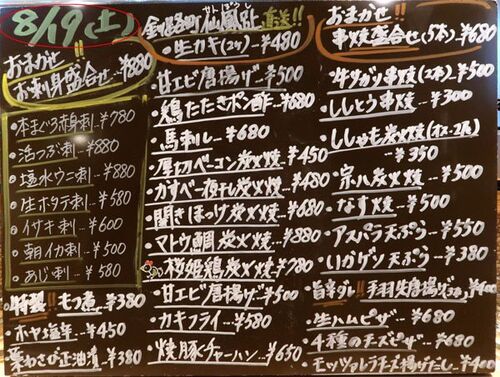 8/19(土)
おまかせ
お刺身盛合せ ¥880
・本まぐろ赤身刺…¥780
・活つぶ刺…¥880
・塩水ウニ刺…¥880
・生ホタテ刺…¥580
・イサキ刺…¥600
・朝イカ刺…¥500
・あじ刺…¥580
・特製!! もつ煮 ¥380
・ホヤ塩辛…¥450
葉わさび正油漬…¥380
せんぽうし
釧路町仙鳳趾 直送!!
・生カキ(2ヶ) ¥480
・甘エビ唐揚げ…¥500
・鶏たたきポン酢…¥680
・馬刺し…¥680
・厚切ベーコン炭火焼…¥450
・かすべ一夜干し炭火焼…¥480
・開きほっけ炭火焼…¥680
・マトウ鯛炭火焼…¥880
・桜姫鶏炭火焼…¥780
・甘エビ唐揚げ…¥500
・カキフライ…¥580
・焼豚チャーハン…¥650
おまかせ
串焼盛合せ(5本) ¥680
・牛サガリ串焼(2本) ¥500
・ししとう串焼…¥300
・ししゃも炭火焼(オス・2尾)
…¥350
・宗八炭火焼…¥500
・なす焼…¥500
・アスパラ天ぷら…¥550
・いかゲソ天ぷら…¥380
・旨辛ダレ!! 手羽先唐揚げ ¥400
・生ハムピザ…¥680
・4種のチーズピザ…¥680
・モッツァレラチーズ揚げだし…¥400